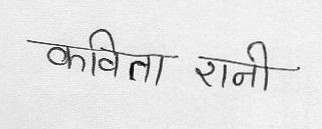 कविता रानी